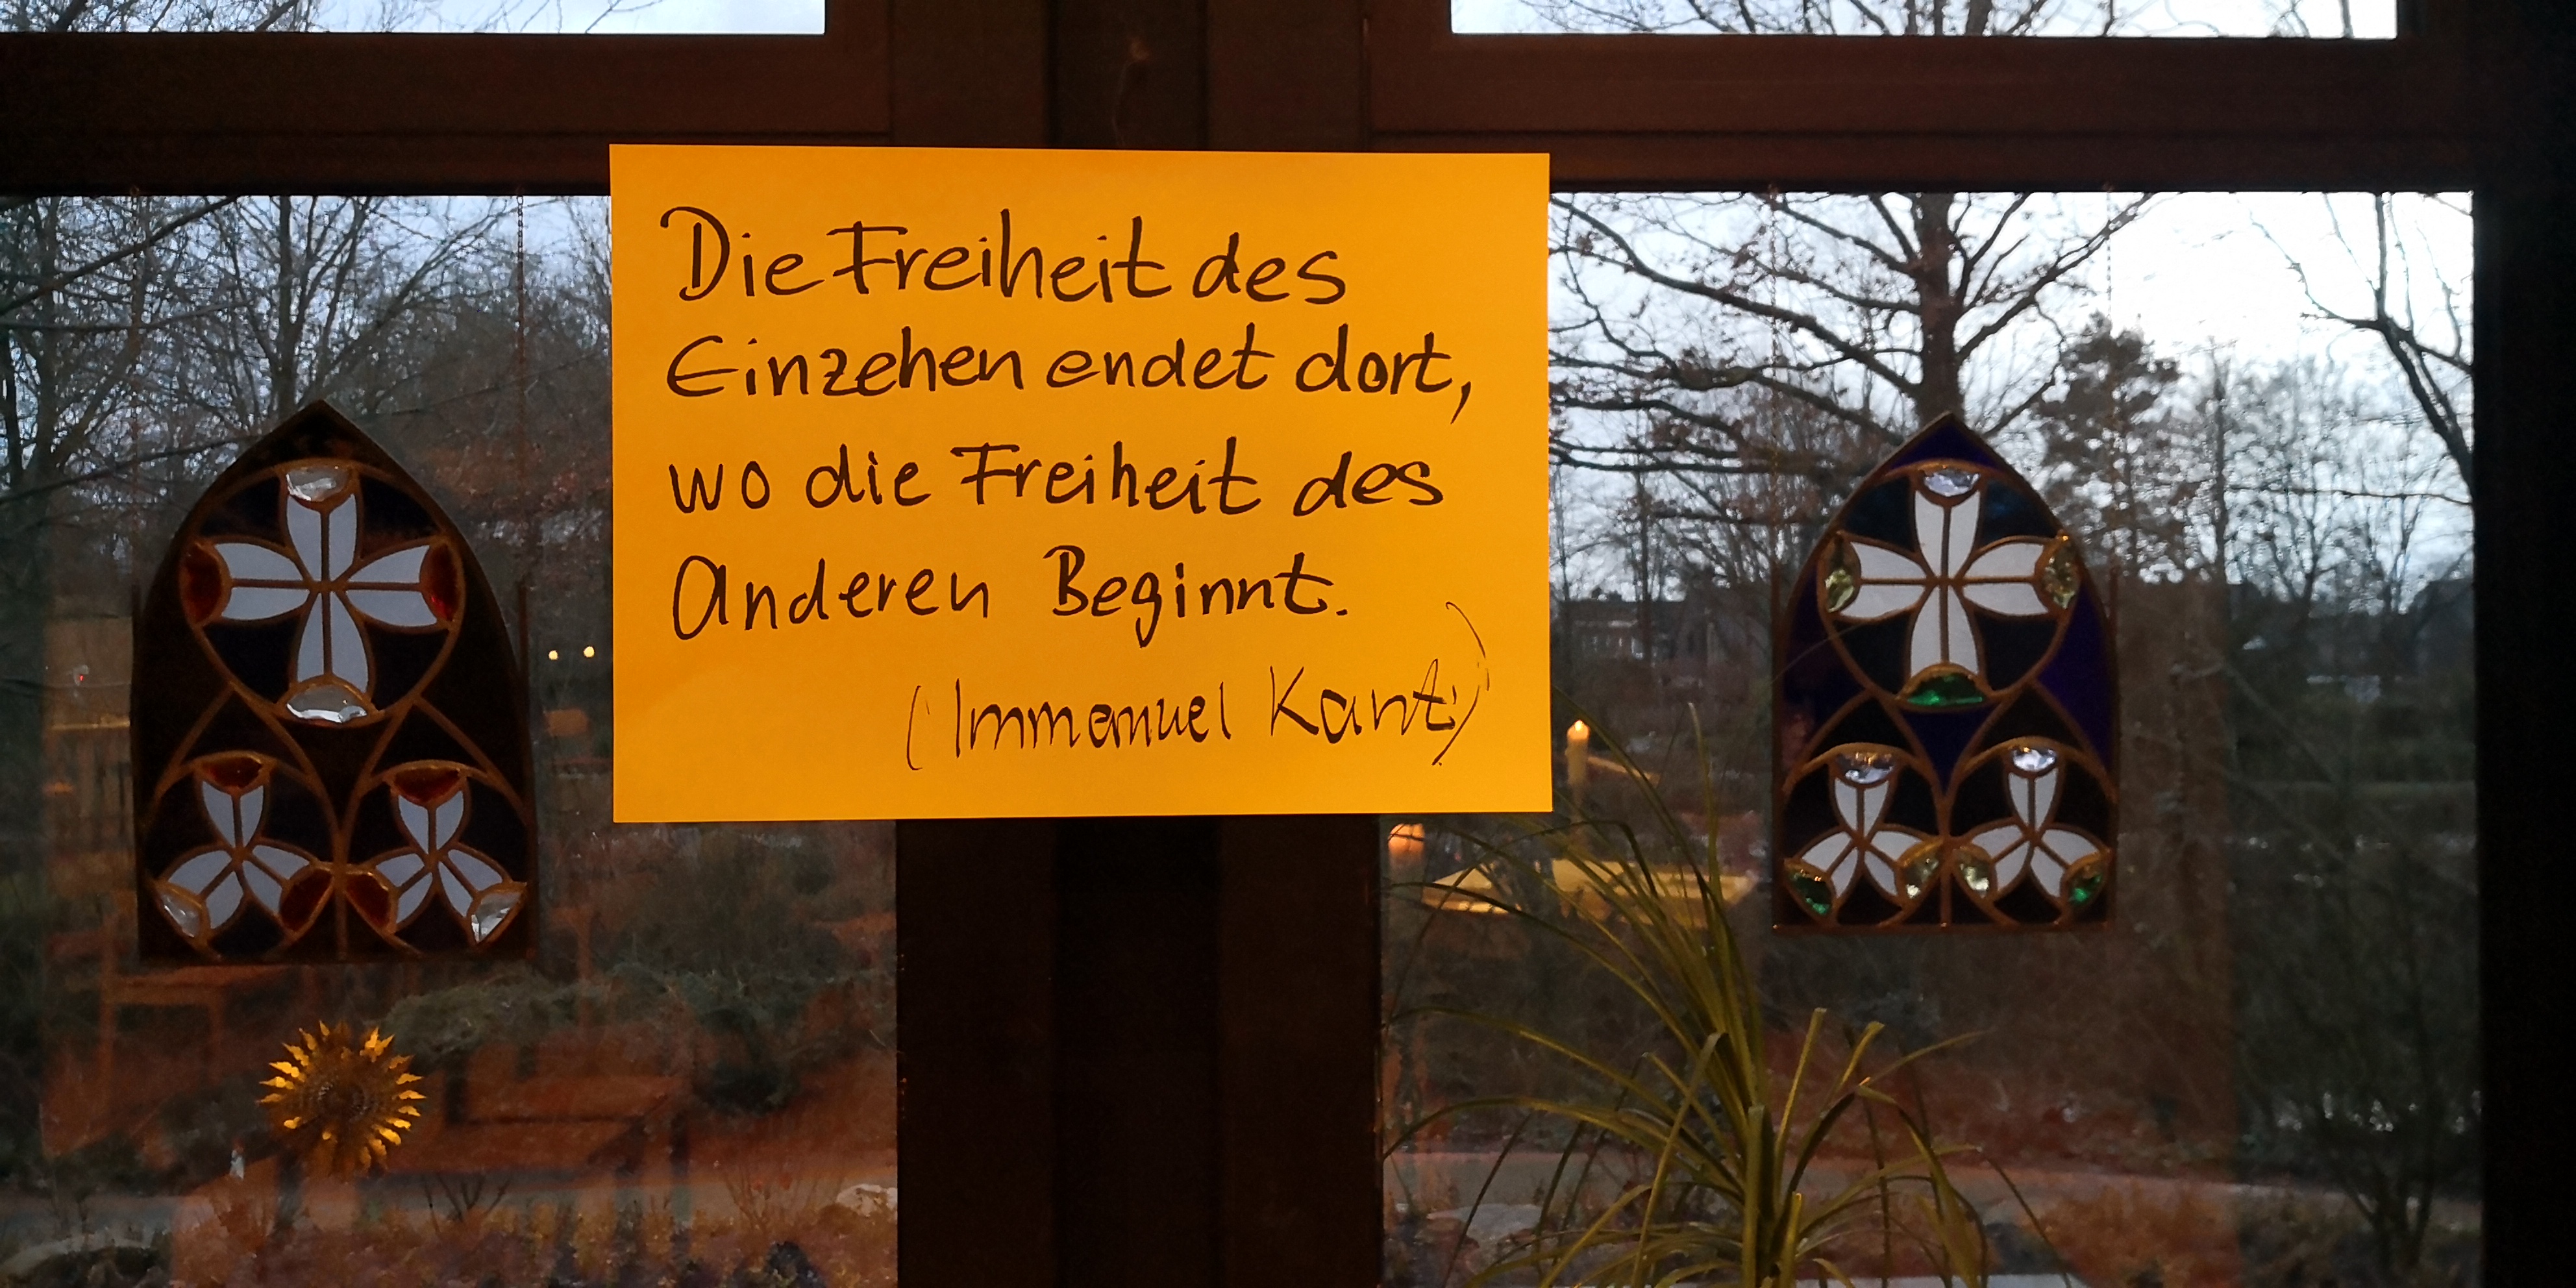 Die Freiheit des
Einzehen endet dort,
wo die Freiheit des
Anderen Beginnt.
(Immanuel Kant)